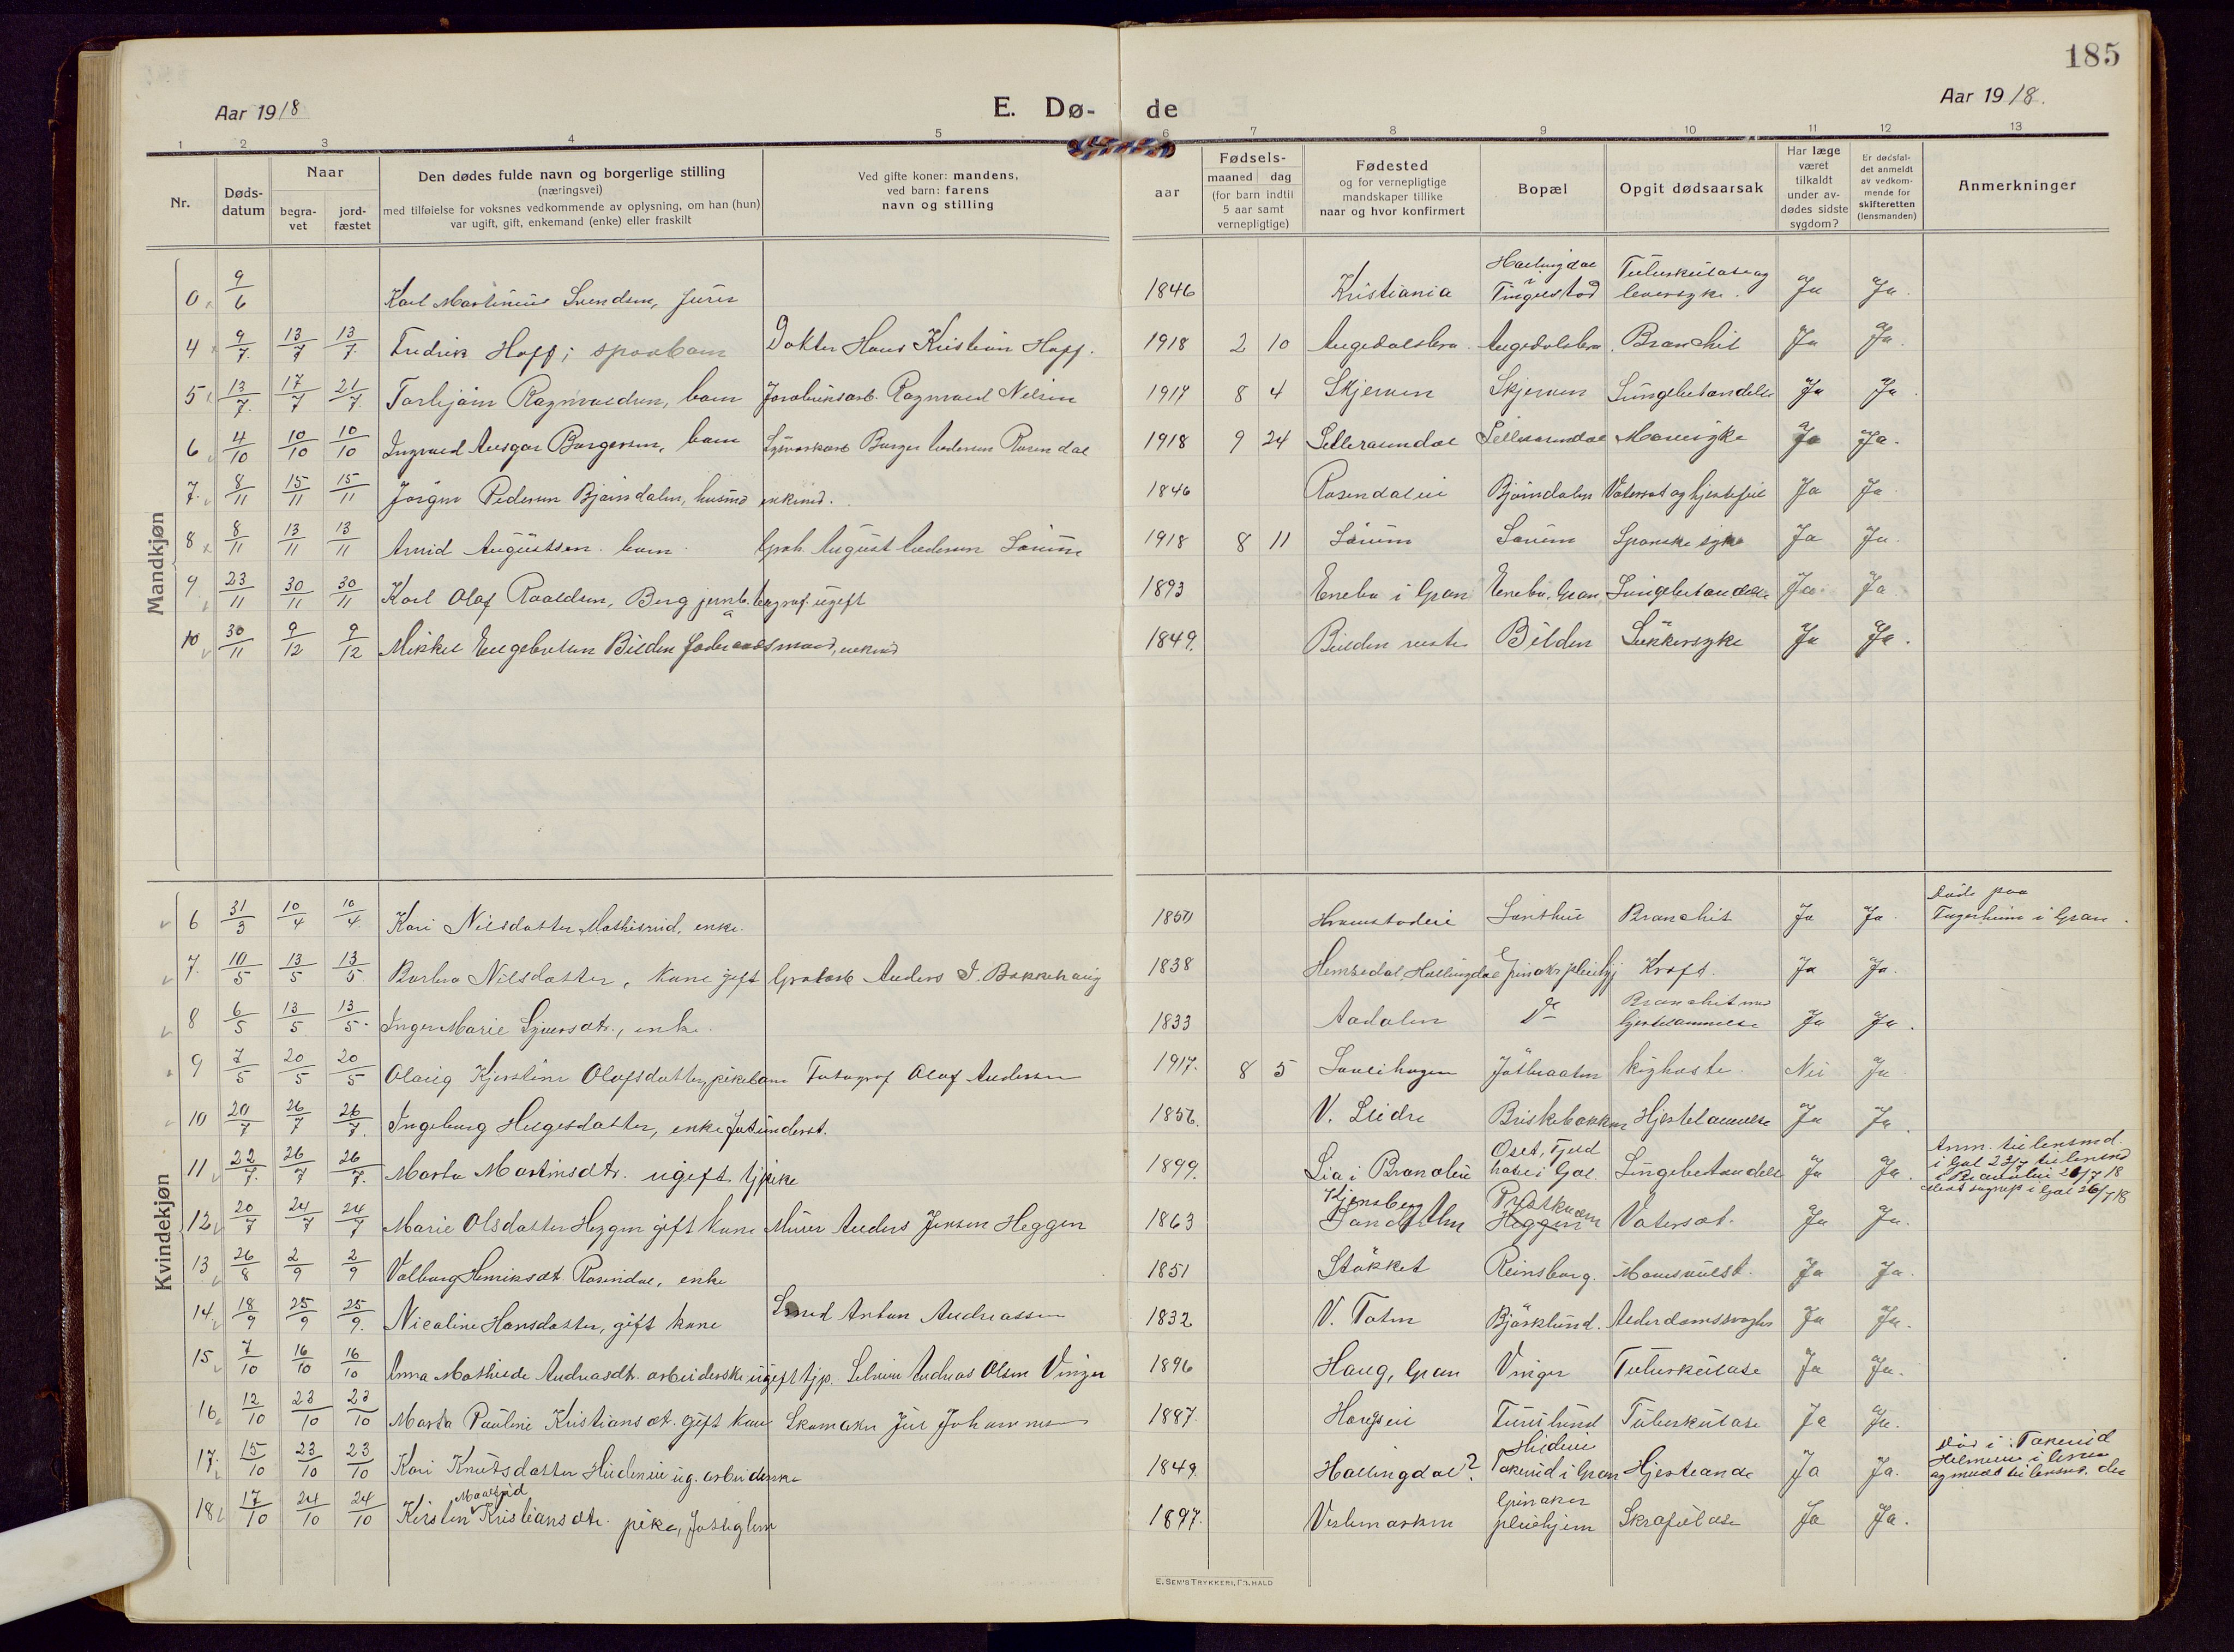 185
Aar 1918
E. Dø-
de
Aar 1918.
1 2 3 4 5 6 7 8 9 10 11 12 13
Nr.
Døds-
datum
Naar
begra-
vet
jord-
fæstet
Den dødes fulde navn og borgerlige stilling
(næringsvei)
med tilføielse for voksnes vedkommende av oplysning, om han (hun)
var ugift, gift, enkemand (enke) eller fraskilt
Ved gifte koner: mandens,
ved barn: farens
navn og stilling
aar
Fødsels-
maaned dag
(for barn indtil
5 aar samt
vernepligtige)
Fødested
og for vernepligtige
mandskaper tillike
naar og hvor konfirmert
Bopæl
Opgit dødsaarsak
Har læge
været
tilkaldt
under av-
dødes sidste
sygdom?
Er dødsfal-
det anmeldt
av vedkom-
mende for
skifteretten
(lensmanden)
Anmerkninger
Mandkjøn
0 9/6 Karl Martinius Svendsen, 1846 Kristiania Hallingdal i Tingelstad Tuberkulose og leversyke. Ja Ja.
4 9/7 13/7 13/7 Fredrik Hoff; spæbarn Doktor Hans Kristian Hoff. 1918 2 10 Augedalsbro. Augedalsbro. Bronchit Ja Ja.
5 13/7 17/7 21/7 Torbjørn Ragnvaldsen, barn Ragnvald Nilsen 1917 8 4 Skjerven Skjerven Lungebetændelse Ja Ja.
6 4/10 10/10 10/10 Ingvald Ansgar Borgersen, barn Borger Andersen Rosendal 1918 9 24 Mavesyke Ja Ja.
7. 8/11 15/11 15/11 Jørgen Pedersen Bjørndalen, husmd enkemd. 1846 Rosendaleie Bjørndalen Vatersot og hjertefeil Ja Ja.
8 8/11 13/11 13/11 Arvid Augustsen. barn. August Andersen Sørum 1918 8 11 Sørum Sørum Spanske syke Ja Ja.
9 23/11 30/11 30/11 Karl Olaf Roaldsen, Berg jernb. ugift 1893 Enebo i Gran Enebo, Gran Lungebetændelse Ja Ja
10 30/11 9/12 9/12 Mikkel Engebretsen Bilden foderaadsmand, enkemd 1849. Bilden vestre Bilden Sukkersyke Ja Ja.
Kvindekjøn
6 31/3 10/4 10/4 Kari Nilsdatter Mathisrud, enke. 1850 Bronchit Ja Ja. Døde paa i Gran.
7. 10/5 13/5 13/5 Barbro Nilsdatter, kone gift Anders J. Bakkehaug 1838 Hemsedal, Hallingdal Kræft. Ja Ja.
8 6/5 13/5 13/5. Inger Marie Syversdtr., enke. 1833 Aadalen Do Bronchit med hjertelammelse Ja Ja.
9 7/5 20/5 20/5 Olaug Kjerstine Olafsdatter, pikebarn Fotograf Olaf Andersen 1917. 8 5 kighoste. Nei Ja
10 20/7 26/7 26/7. Ingeborg Helgesdatter, enke fatunderst. 1856. V. Slidre Briskebakken Hjertelammelse Ja Ja.
11 22/7. 26/7 26/7. Marta Martinsdtr. ugift tjpike 1899. Lia i Brandbu Oset, Fjeld i Gol. Lungebetændelse Ja Ja. Anm. til lensmd. i Gol 23/7 til lensmd i Brandbu 26/7 18 i Gol 26/7 18
12 20/7 24/7 24/7 Marie Olsdatter Heggen gift kone Murer Anders Jensen Heggen 1863 Kjensberg Præstkvern Heggen Vatersot. Ja Ja.
13 26/8 2/9 2/9 Valborg Henriksdt. Rosendal, enke 1851 Støkket Reinsborg. Ja Ja.
14 18/9 25/9 25/9. Nicoline Hansdatter, gift kone Smed Anton Andreassen 1832 V. Toten Bjørklund. Alderdomssvaghet Ja Ja.
15 7/10 16/10 16/10 Anna Mathilde Andreasdtr. arbeiderske ugift tjp. Selveier Andreas Olsen Vinger 1896 Haug, Gran Vinger Tuberkulose Ja Ja.
16 12/10 23/10 23/10 Marta Pauline Kristiansdt. gift kone Skomaker Jul Johannesen 1887. Haugseie Furulund Tuberkulose Ja Ja.
17. 15/10 23/10 23/10 Kari Knutsdatter ug. arbeiderske 1849. Hallingdal? i Gran Hjerteonde Ja Ja. Død i
18 17/10 24/10 24/10 Kirsten Kristiansdtr. pike, 1897. Vestmarken Grinaker pleiehjem Skrofulose Ja Ja.
E. SEM'S TRYKKERI, FR.HALD